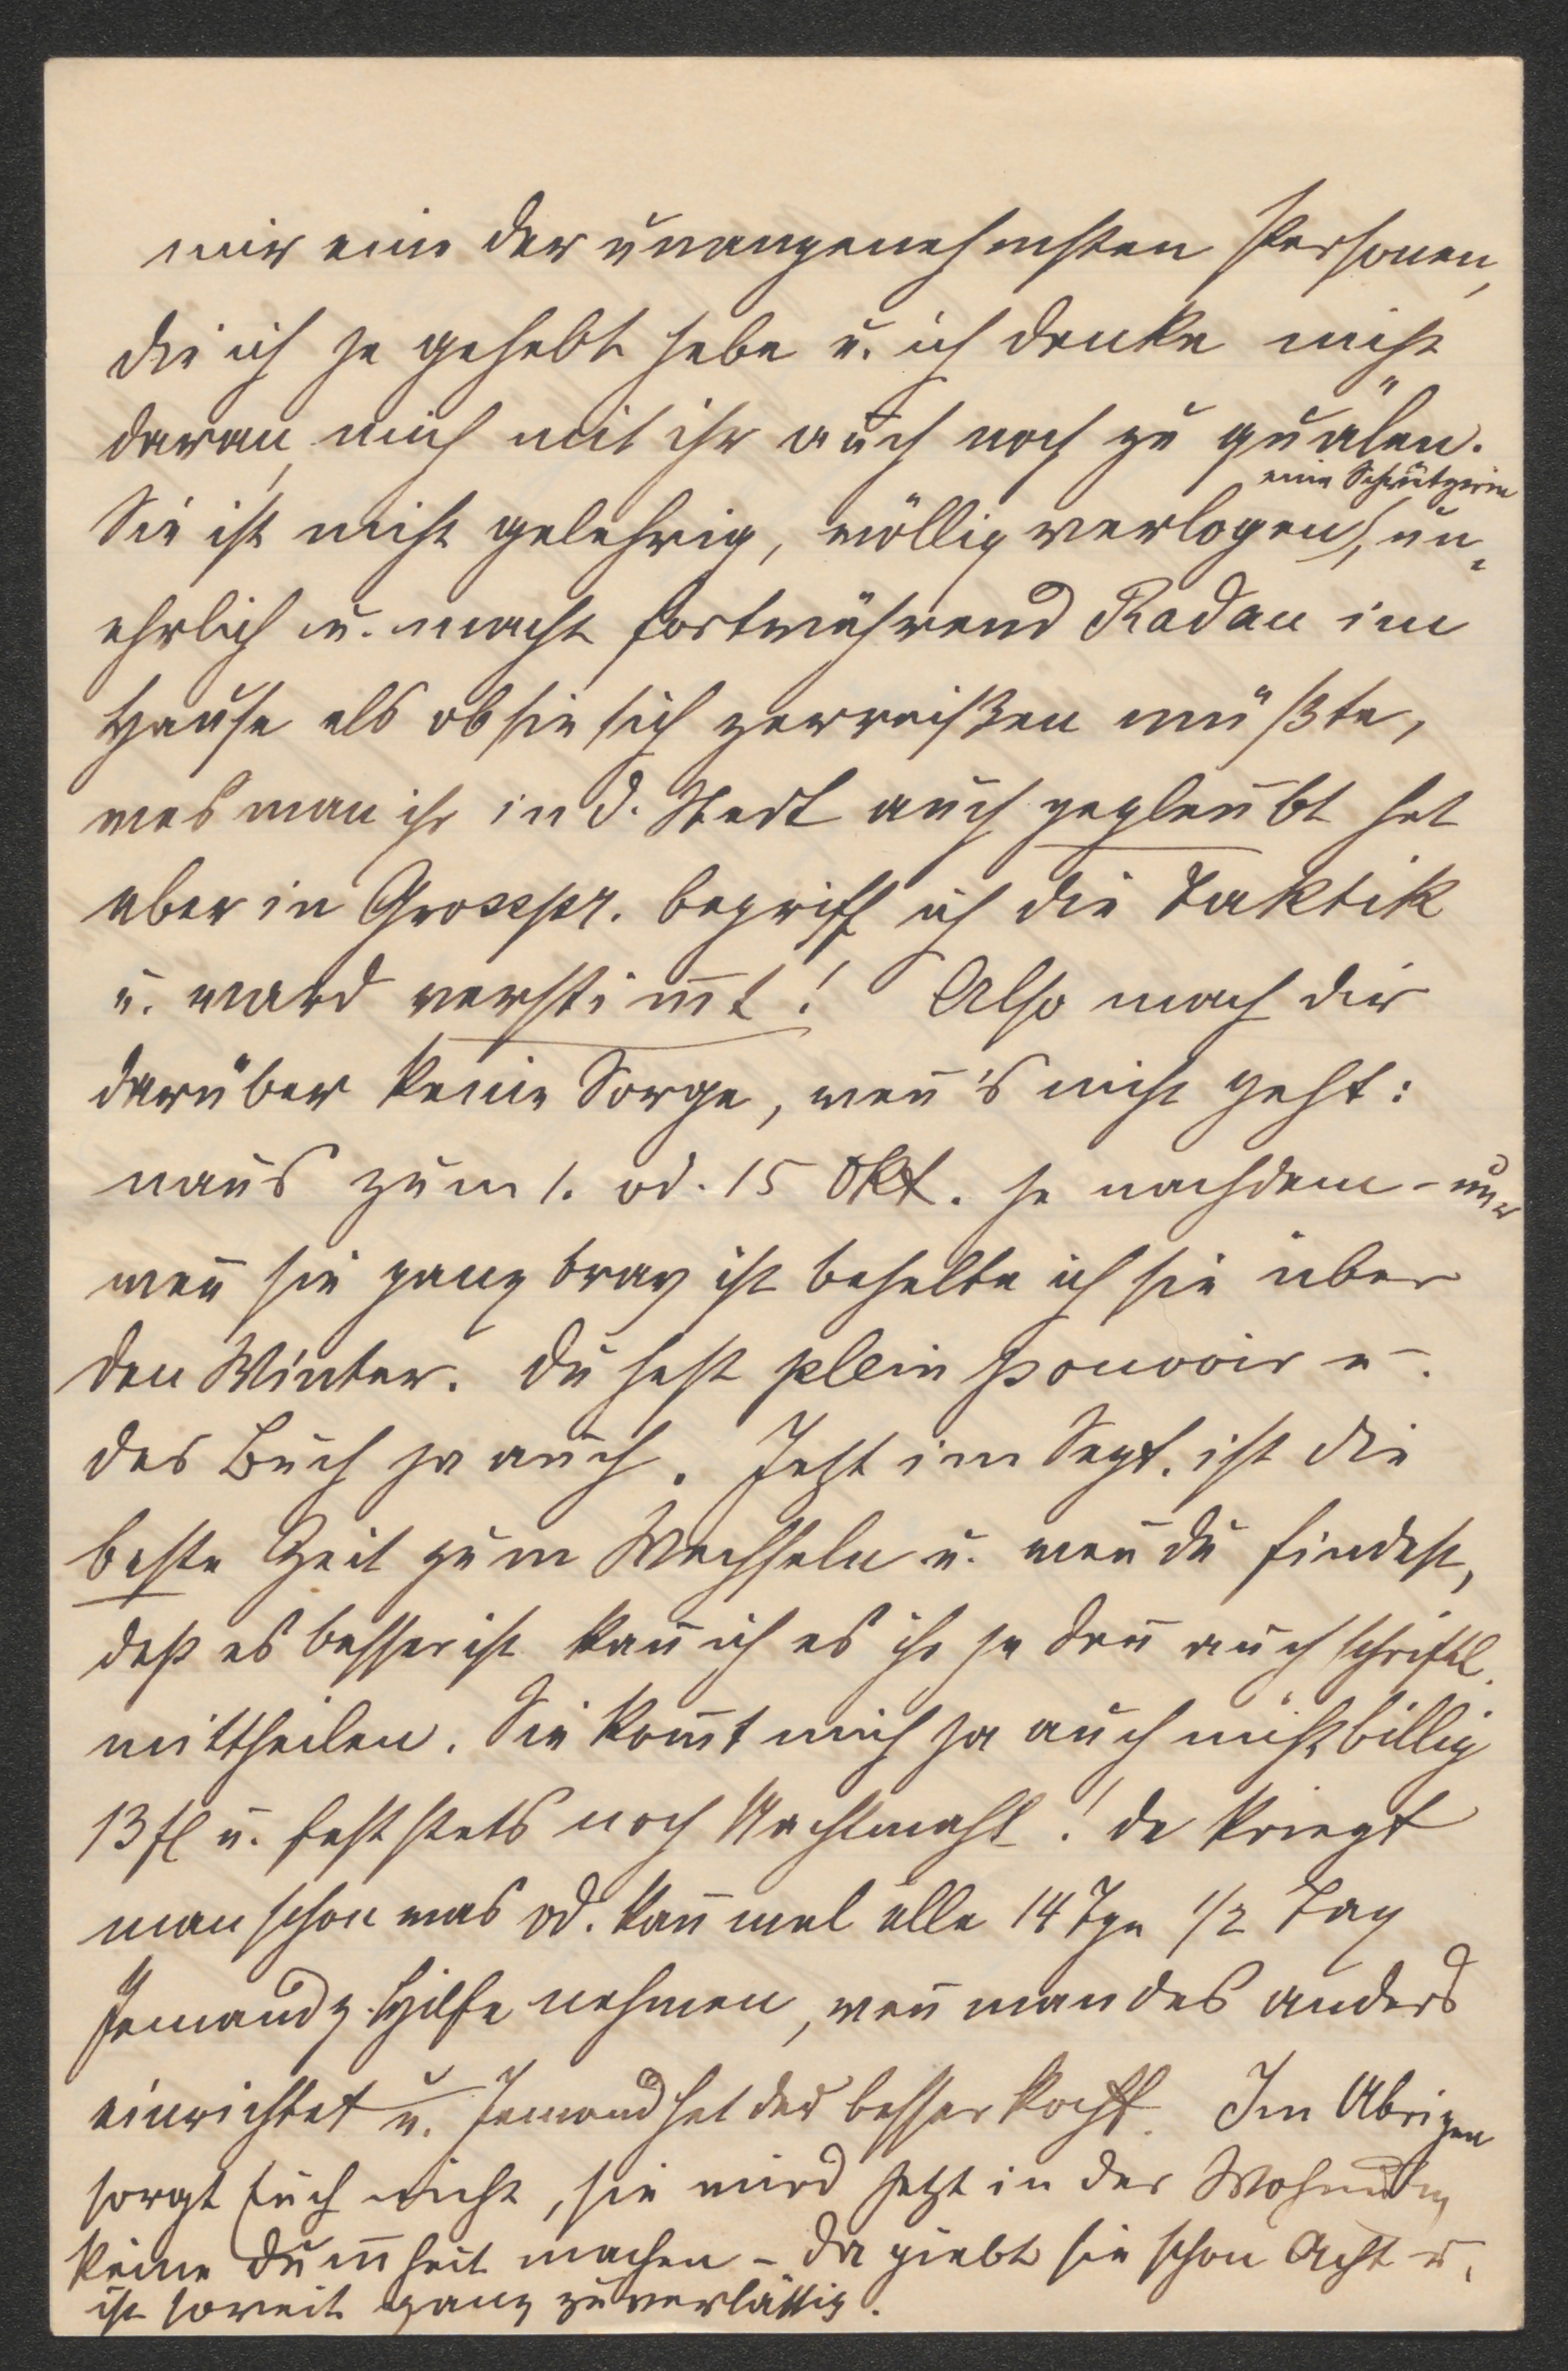 mir eine der unangenehmsten Personen,
die ich je gehabt habe u. ich denke nicht
daran, mich mit ihr auch noch zu quälen.
eine Schwätzerin
Sie ist nicht gelehrig, völlig verlogen, un-
ehrlich u. macht fortwährend Radau im
Hause als ob sie sich zerreißen müßte,
was man ihr in d. Stadt auch geglaubt hat
aber in Grosspr. begriff ich die Taktik
u. ward verstim̄t! Also mach dir
darüber keine Sorge, wen̄'s nicht geht:
naus zum 1. od. 15 Okt. je nachdem - nur
wen̄ sie ganz brav ist behalte ich sie über
den Winter. Du hast plein pouvoir u.
das Buch ja auch. Jetzt im Sept. ist die
beste Zeit zum Wechseln u. wen̄ du findest,
daß es besser ist kan̄ ich es ihr ja dan̄ auch schriftl.
mittheilen. Sie kom̄t mich ja auch nicht billig
13 fl u. fast stets noch Nachtmahl! da kriegt
man schon was od. kan̄ mal alle 14 Tge 1/2 Tag
Jemand z. Hilfe nehmen, wen̄ man das anders
einrichtet u. Jemand hat der besser kocht. Im Übrigen
sorgt Euch nicht, sie wird jetzt in der Wohnung
keine Dum̄heit machen - da giebt sie schon Acht u.
ist soweit ganz zuverlässig.